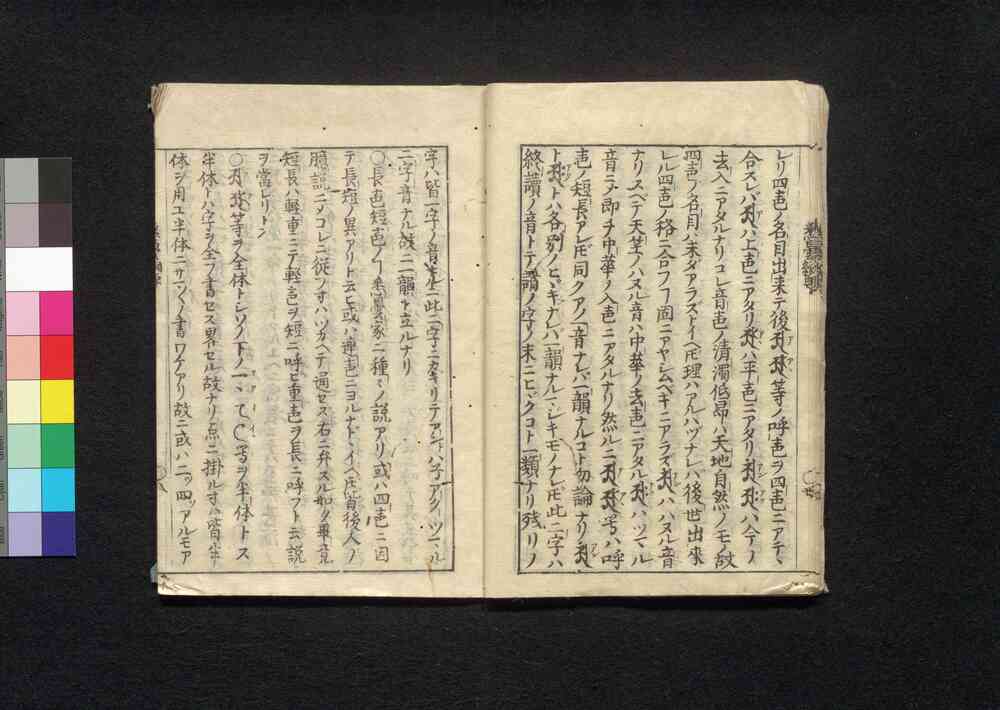 レリ四声ノ名目出来テ後𑖀𑖀等ノ呼声ヲ四声ニアテヽ
合スレバ𑖀ハ上声ニアタリ𑖀ハ平声ニアタリ𑖀𑖀ハ合テノ
去入ニアタルナリコレ音声ノ清濁低昂ハ天地自然ノモノ故
四声ノ名目ハ未ダアラズトイヘ𪜈理ハアルハヅナレバ後世出来
レル四声ノ格ニ合フヿ固ニアヤシムベキニアラズ𑖀ハハヌル音
ナリスベテ天竺ノハヌル音ハ中華ノ去声ニアタル𑖀ハツマル
音ニテ即チ中華ノ入声ニアタルナリ然ルニ𑖀𑖀等ハ呼
声ノ短長アレ𪜈同クアノ一音ナレバ一韻ナルコト勿論ナリ𑖀
ト𑖀トハ各別ノヒヾキナレバ一韻ナルマシキモノナレ𪜈此二字ハ
終讃ノ音トテ諸ノ字ノ末ニヒヾクコト一類ナリ残リノ
字ハ皆一字ノ音生一此二字ニカキリテアンハ子アクハツマル
二字音ナル故ニ一韻ト立ルナリ
〇長声短声ノヿ悉曇家ニ種々ノ説アリ或ハ四声ニ因
テ長短ノ異アリト云ヒ或ハ連声ニヨルナドヽイヘ𪜈皆後人ノ
臆説ニメコレニ從フ寸ハツカヘテ通セス右ニ弁スル如ク畢竟
短長ハ輕重ニテ輕声ヲ短ニ呼ヒ重声ヲ長ニ呼フト云説
ヲ當レリトン
〇𑖀𑖀等ヲ全体トシソノ下ノ
等ヲ半体トス
半体トハ字ヲ全フ書セス畧セル故ナリ点ニ掛ル寸ハ皆半
体ヲ用ユ半体ニサマ〱ノ書ワケアリ故ニ或ハ二ツ四ツアルモア